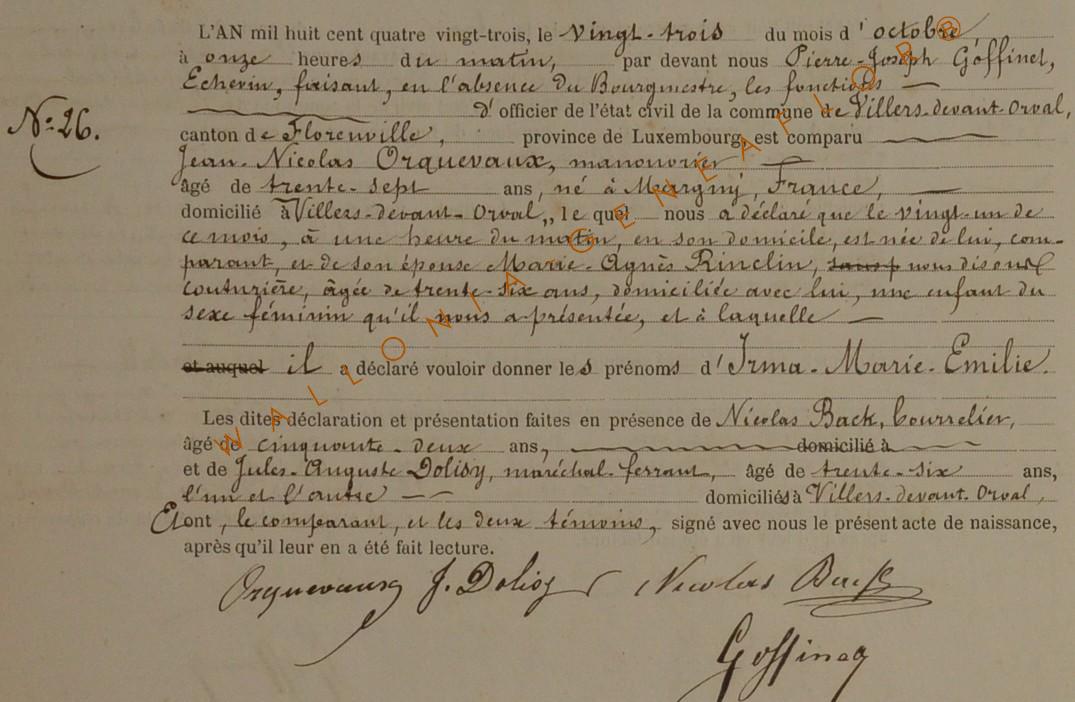 L'AN mil huit cent quatre vingt-trois, le vingt-trois du mois d'octobre
à onze heures du matin, par devant nous Pierre-Joseph Goffinet,
Echevin, faisant, en l'absence du Bourgmestre, les fonctions
d'officier de l'état civil de la commune de Villers-devant-Orval,
N° 26.
canton de Florenville, province de Luxembourg, est comparu
Jean-Nicolas Orquevaux, manouvrier
âgé de trente-sept ans, né à Margny, France,
domicilié à Villers-devant-Orval, lequel nous a déclaré que le vingt-un de
ce mois, à une heure du matin, en son domicile, est née de lui, com-
parant, et de son épouse Marie-Agnès Rinclin, sans p nous disons
couturière, âgée de trente-six ans, domiciliée avec lui, une enfant du
sexe féminin qu'il nous a présentée, et à laquelle
et auquel il a déclaré vouloir donner les prénoms d'Irma-Marie-Emilie.
Les dites déclaration et présentation faites en présence de Nicolas Back, bourrelier,
âgé de cinquante-deux ans, domicilié à
et de Jules-Auguste Dolisy, maréchal-ferrant, âgé de trente-six ans,
l'un et l'autre domiciliés à Villers-devant-Orval,
Et ont, le comparant, et les deux témoins, signé avec nous le présent acte de naissance,
après qu'il leur en a été fait lecture.
Orquevaux J. Dolisy Nicolas Back
Goffinet
WALLONIA-GENEAFLOR®